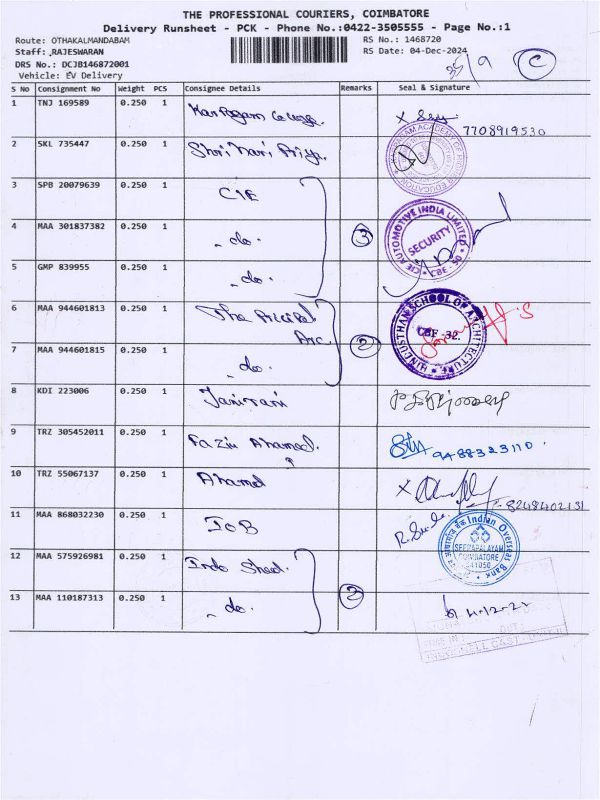 THE PROFESSIONAL COURIERS, COIMBATORE
Delivery Runsheet - PCK - Phone No.:0422-3505555 - Page No.:1
Route: OTHAKALMANDABAM RS No.: 1468720
Staff: ,RAJESWARAN RS Date: 04-Dec-2024
DRS No.: DCJB146872001 35/9 C
Vehicle: EV Delivery
S No Consignment No Weight PCS Consignee Details Remarks Seal & Signature
1 TNJ 169589 0.250 1 Karpagam College X
7708919530
2 SKL 735447 0.250 1 Shri Hari Priya
3 SPB 20079639 0.250 1 CIE
4 MAA 301837382 0.250 1 - do - 3 CIE AUTOMOTIVE INDIA LIMITED SECURITY CBE - 50
5 GMP 839955 0.250 1 - do -
6 MAA 944601813 0.250 1 The
Arc HINDUSTHAN SCHOOL OF ARCHITECTURE CBE - 32.
7 MAA 944601815 0.250 1 - do - 2
8 KDI 223006 0.250 1
9 TRZ 305452011 0.250 1 Fazil Ahamed 9488323110
10 TRZ 55067137 0.250 1 Ahamed X 8248402131
11 MAA 868032230 0.250 1 IOB Indian Overseas Bank
SEERAPALAYAM
COIMBATORE
641050
12 MAA 575926981 0.250 1 Indo Shed
13 MAA 110187313 0.250 1 - do - 2